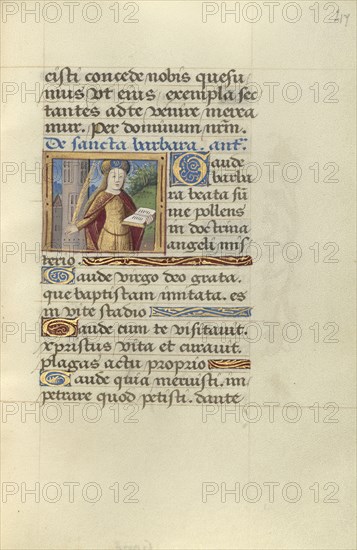 217
cisti concede nobis quesu
mus vt eius exempla sec
tantes ad te venire merea
mur. Per dominum nrm.
De sancta barbara. ant.
Gaude
barba
ra beata sū
me pollens
in doctrina
angeli mis
terio.
Gaude virgo deo grata.
que baptistam imitata. es
in vite stadio
Gaude cum te visitauit.
xpristus vita et curauit.
plagas actu proprio
Gaude quia meruisti. im
petrare quod petisti. dante
PHOTO12